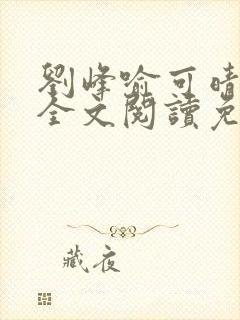 劉峰喻可晴
全文閱讀免
藏夜